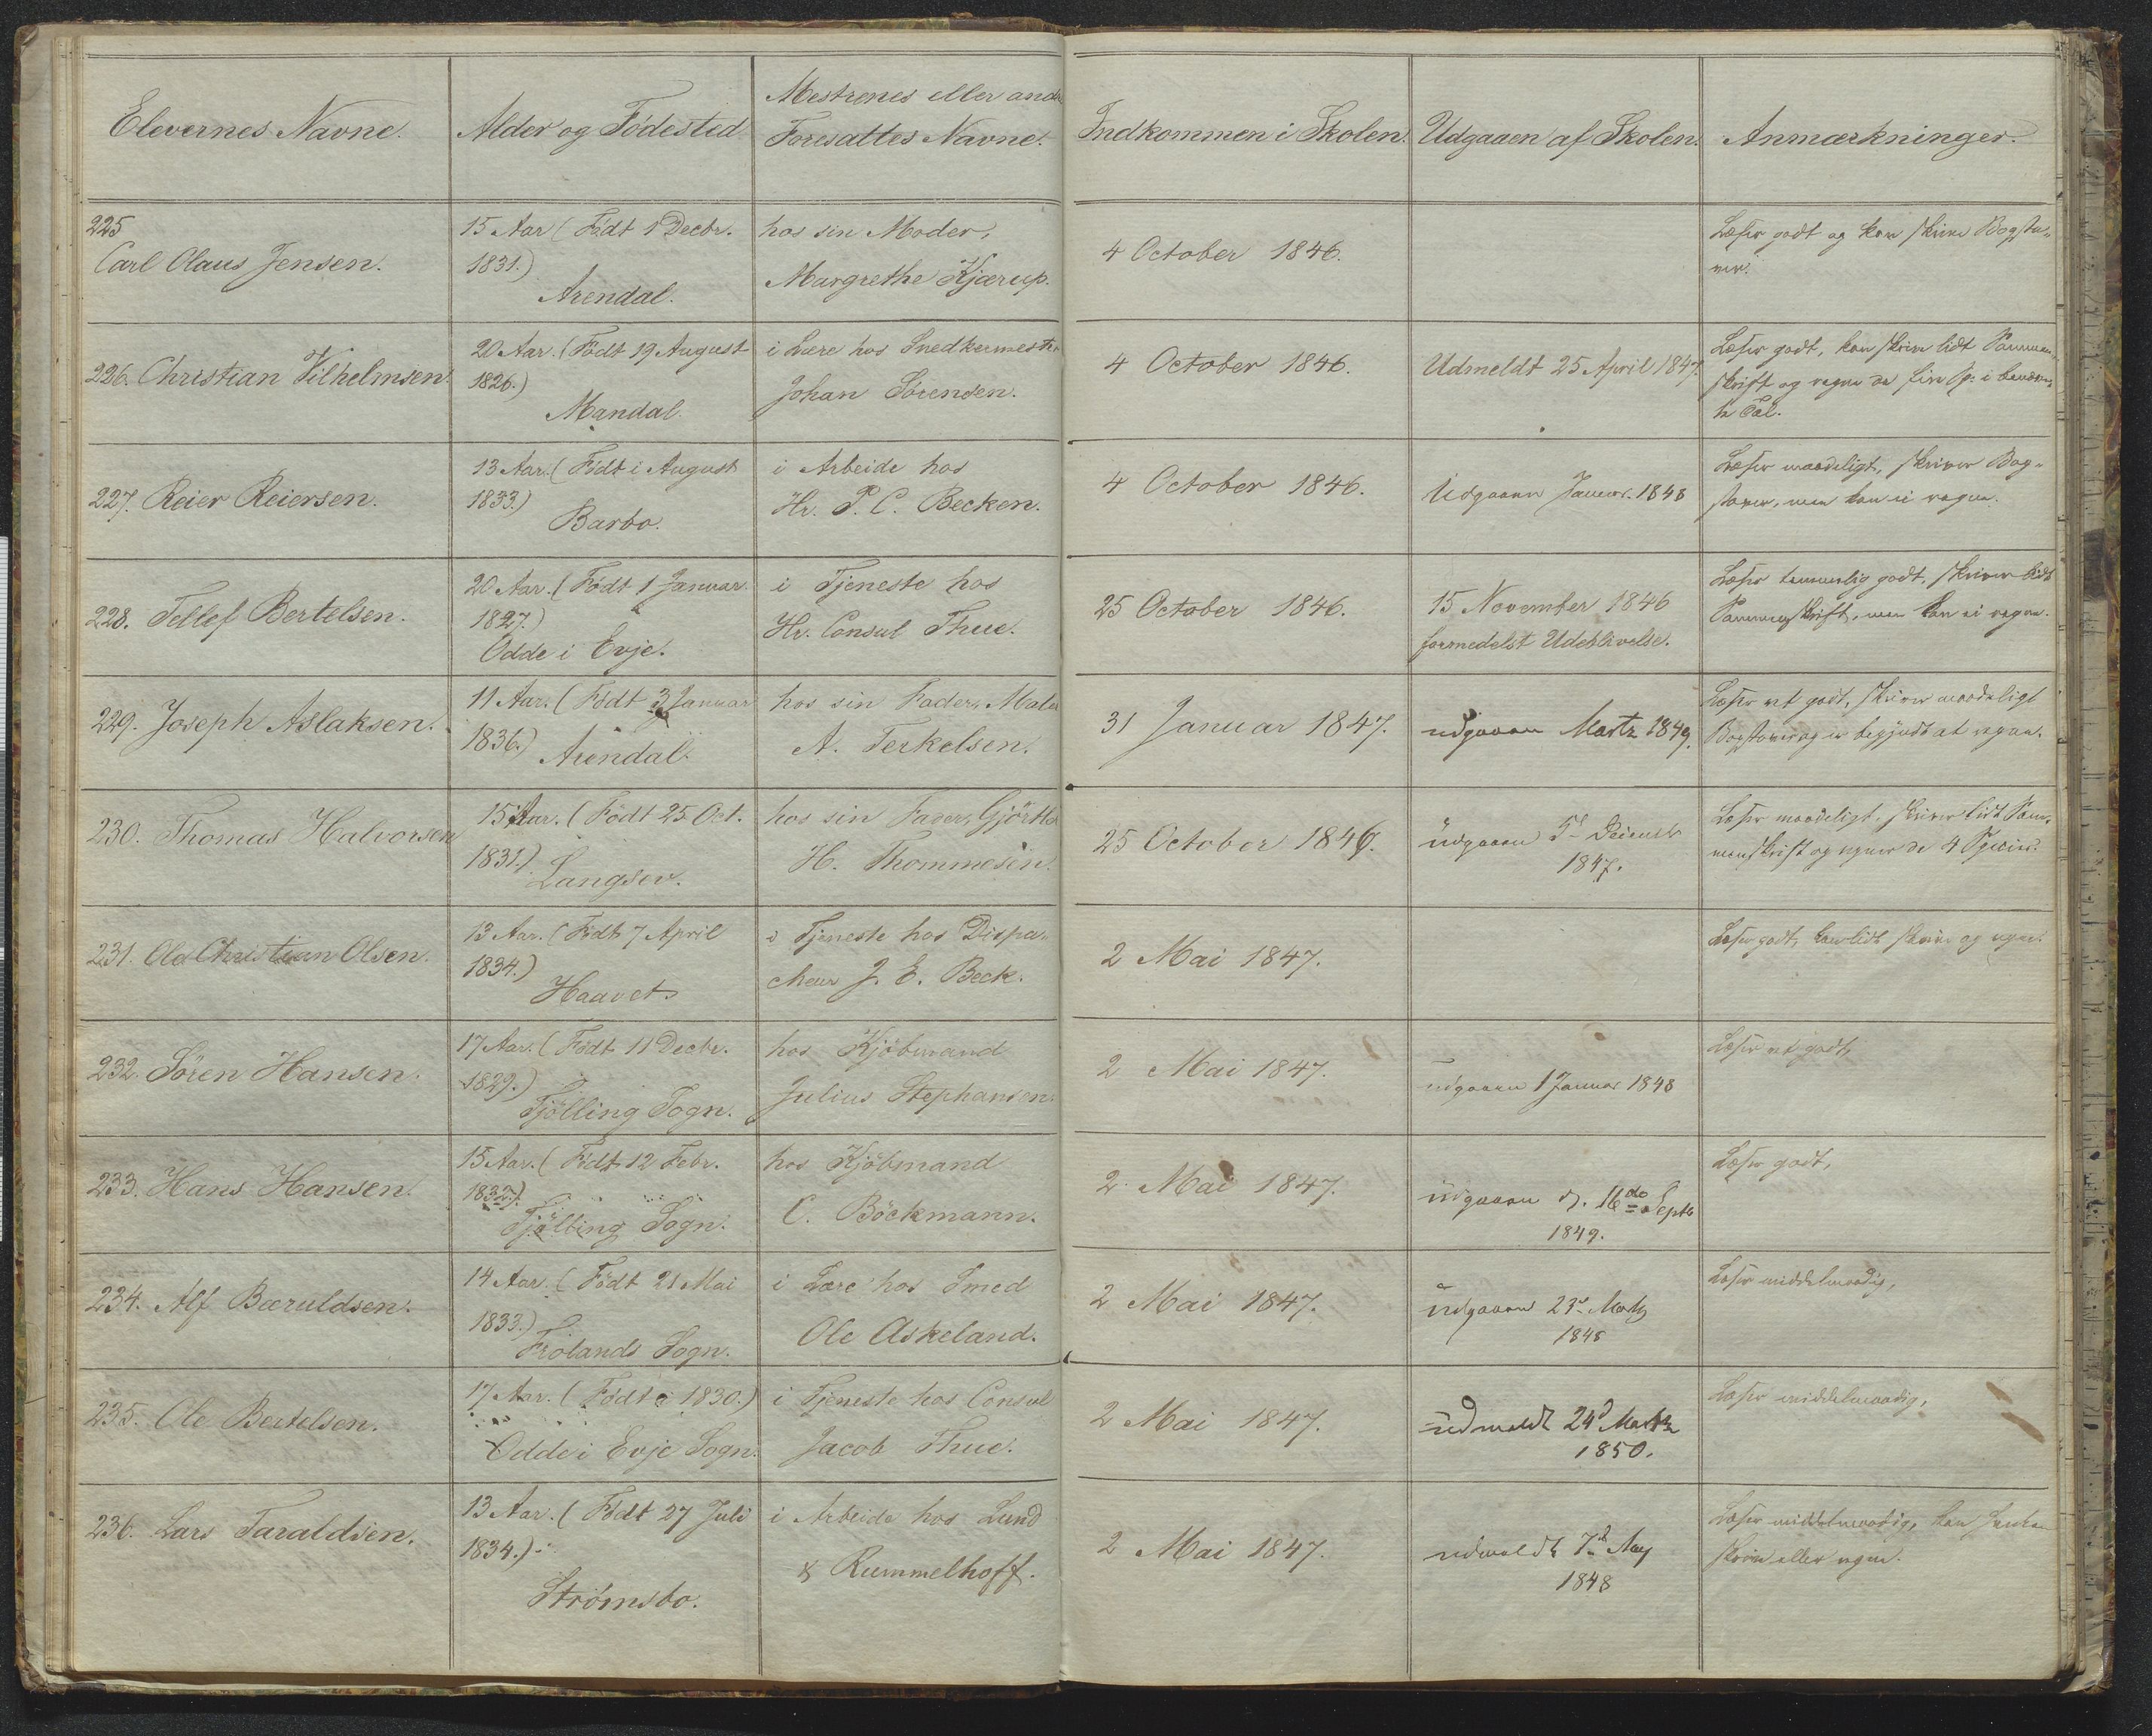 Elevernes Navne.
Alder og Fødested
Mestrenes eller andre
Foresattes Navne.
Indkommen i Skolen.
Udgaaen af Skolen.
Anmærkninger.
225
Carl Olaus Jensen.
15 Aar (Født 1 Decbr.
1831.)
Arendal.
hos sin Moder,
Margrethe Kjærup.
4 October 1846.
Læser godt og kan skrive Bogsta-
ver.
226. Christian Vilhelmsen.
20 Aar. (Født 19 August
1826.)
Mandal.
i Lære hos Snedkermester
Johan Sørensen.
4 October 1846.
Udmeldt 25 April 1847.
Læser godt, kan skrive lidt Sammen-
skrift og regne de fire Sp. i benævn-
te Tal.
227. Reier Reiersen.
13 Aar. (Født i August
1833.)
Barbo.
i Arbeide hos
Hr. P. C. Becken.
4 October 1846.
Udgaaen Januar. 1848
Læser maadeligt, skriver Bog-
staver, men kan ei regne.
228. Tellef Bertelsen.
20 Aar. (Født 1 Januar
1827.)
Odde i Evje.
i Tjeneste hos
Hr. Consul Thue.
25 October 1846.
15 November 1846
formedelst Udeblivelse.
Læser temmelig godt, skriver lidt
Sammenskrift, men kan ei regne.
229. Joseph Aslaksen.
11 Aar. (Født 3 Januar
1836.)
Arendal.
hos sin Fader, Maler
A. Terkelsen.
31 Januar 1847.
udgaaen Martz 1849.
Læser ret godt, skriver maadeligt
Bogstaver og er begyndt at regne.
230. Thomas Halvorsen
15 Aar. (Født 25 Oct.
1831.)
Langsev.
hos sin Fader, Gjörtler
H. Thommesen.
25 October 1846.
udgaaen 5 December
1847.
Læser maadeligt, skriver lidt Sam-
menskrift og regner de 4 Specier.
231. Ole Christian Olsen.
13 Aar. (Født 7 April
1834.)
Haavet
i Tjeneste hos Dispa-
cheur J. E. Beck.
2 Mai 1847.
Læser godt, kan lidt skrive og regne.
232. Sören Hansen.
17 Aar. (Født 11 Decbr.
1829.)
Tjölling Sogn.
hos Kjöbmand
Julius Stephansen.
2 Mai 1847.
udgaaen 1 Januar 1848
Læser ret godt,
233. Hans Hansen.
15 Aar. (Født 12 Febr.
1832.)
Tjölling Sogn.
hos Kjöbmand
C. Böckmann.
2 Mai 1847.
udgaaen d. 16do Septb
1849.
Læser godt,
234. Alf Bæruldsen.
14 Aar. (Født 21 Mai
1833.)
Frolands Sogn.
i Lære hos Smed
Ole Askeland.
2 Mai 1847.
udgaaen 23d Martz
1848
Læser middelmaadig,
235. Ole Bertelsen.
17 Aar. (Født i 1830.)
Odde i Evje Sogn.
i Tjeneste hos Consul
Jacob Thue.
2 Mai 1847.
udmeldt 24d Martz
1850.
Læser middelmaadig,
236. Lars Taraldsen.
13 Aar. (Født 27 Juli
1834.)
Strömsbo.
i Arbeide hos Lund
& Rummelhoff.
2 Mai 1847.
udmeldt 7d May
1848
Læser middelmaadig, kan
skrive eller regne.